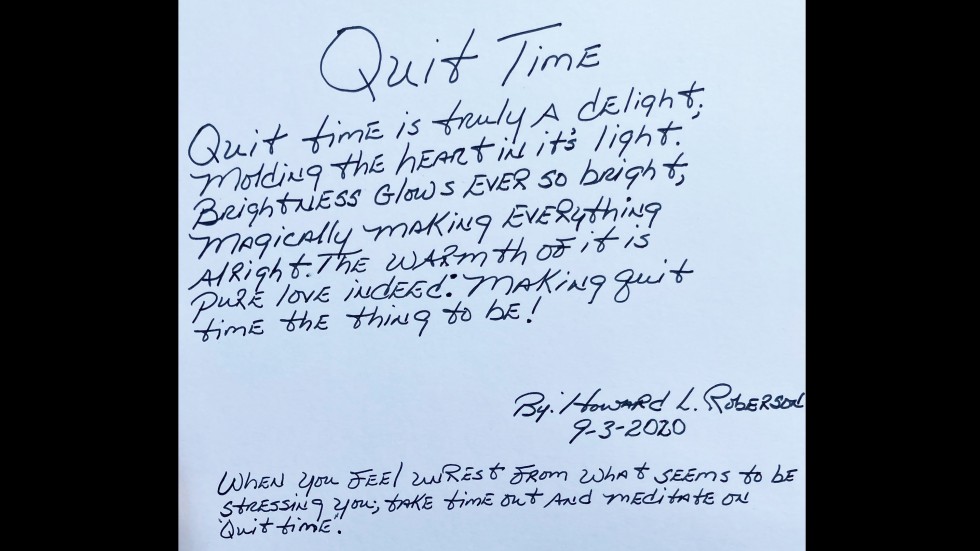 Quit Time
Quit time is truly A delight;
Molding the heart in it's light.
Brightness Glows ever so bright;
Magically making everything
Alright. The warmth of it is
pure love indeed: Making quit
time the thing to be!
By: Howard L. Roberson
9-3-2020
When you feel unrest from what seems to be
stressing you; take time out and meditate on
"Quit time".